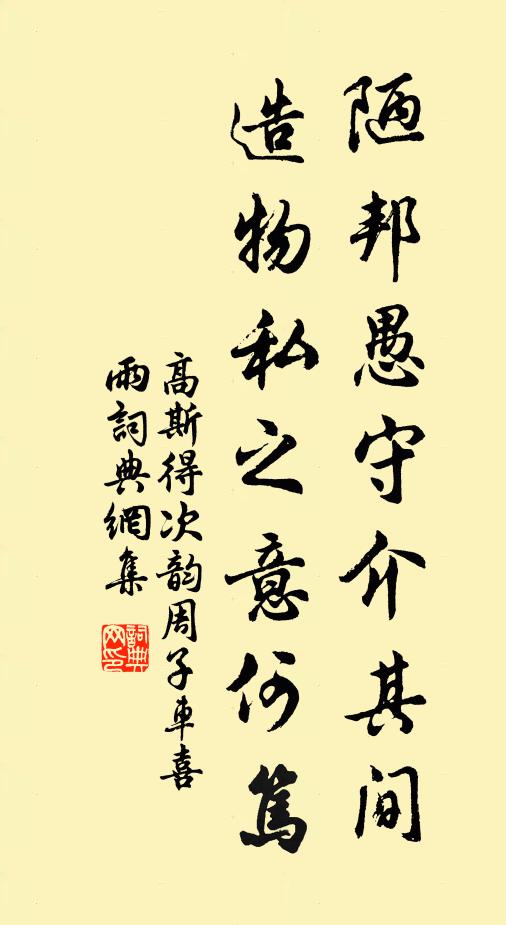 陋邦愚守介其间
造物私之意何篤
高斯得次韵周子車喜
雨詞典網集
詞典网印